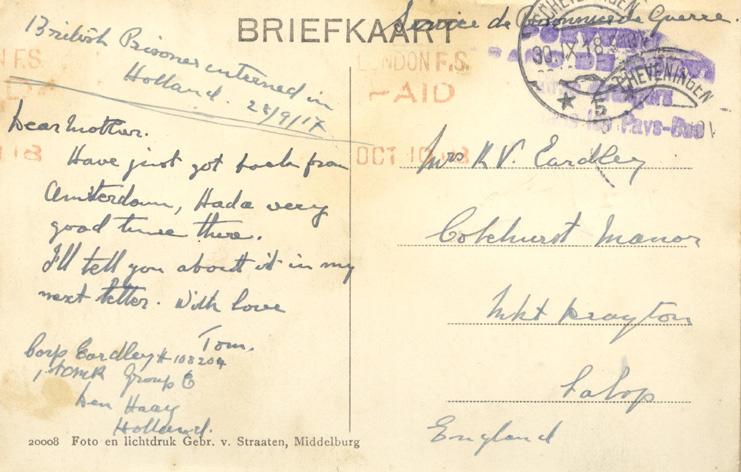 BRIEFKAART
Service de Prisonniers de Guerre.
British Prisoner interned in
Holland. 28/9/17
LONDON F.S.
PAID
OCT 10 18
30 IX 18
SCHEVENINGEN
5
Pays-Bas
Dear Mother.
Have just got back from
Amsterdam, Had a very
good time there.
I'll tell you about it in my
next letter. With love
Tom.
Corp Eardley # 108204
1st CMR Group C
Den Haag
Holland.
Mrs R V. Eardley
Colehurst Manor
Mkt Drayton
Salop
England
20008 Foto en lichtdruk Gebr. v. Straaten, Middelburg